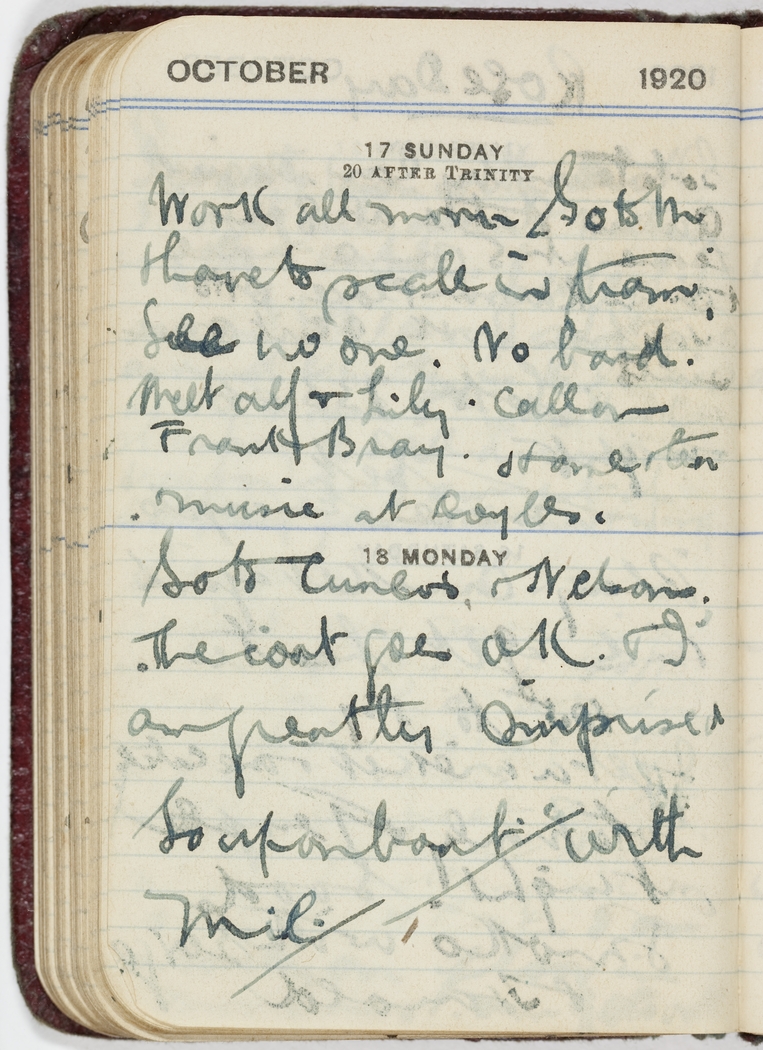 OCTOBER 1920
17 SUNDAY
20 AFTER TRINITY
Work all morn Go to
to in tram,
See no one. No band.
Meet alf & Lily. Call on
Frank Bray. Home
music at Coyles.
18 MONDAY
Go to & Nelson.
The coat goes OK. & I
am greatly
Go up on boat with
Mil.